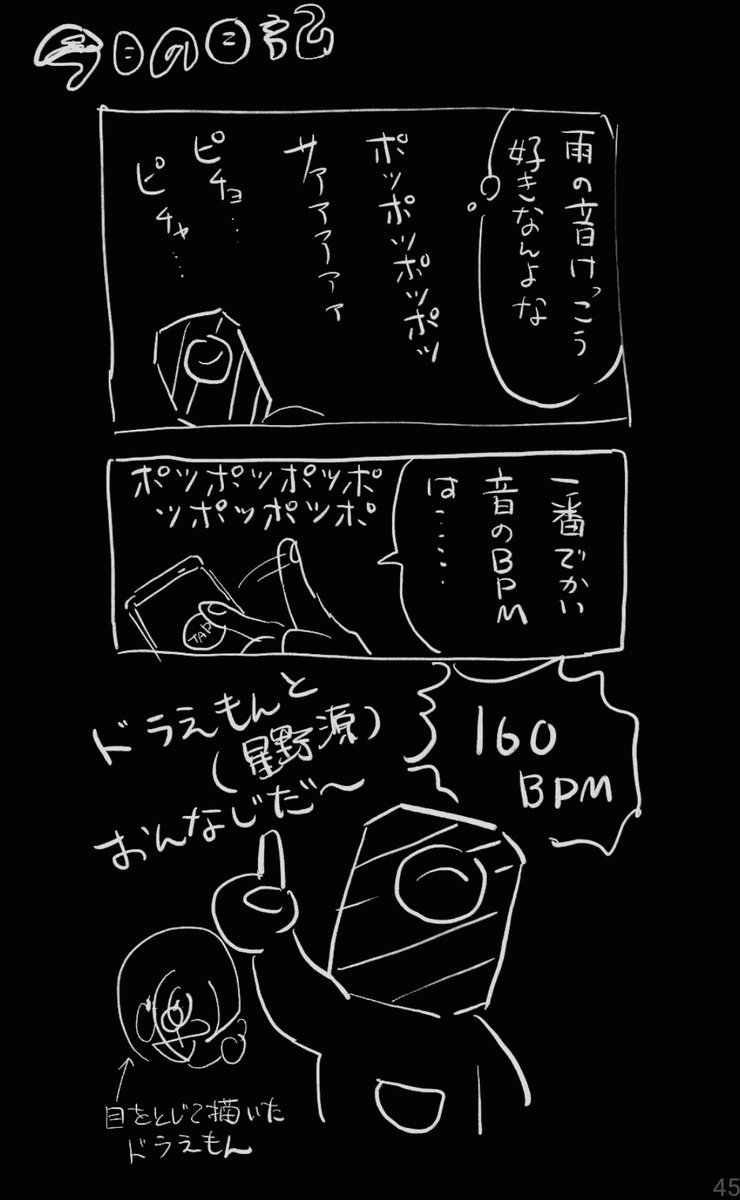 今日の日記
雨の音けっこう
好きなんよな
ポッポッポッポッ
サァァァァァァ
ピチョ…
ピチャ…
一番でかい
音のBPM
は……
ポッポッポッポ
ッポッポッポ
TAP
160
BPM
ドラえもんと
(星野源)
おんなじだ〜
目をとじて描いた
ドラえもん
45